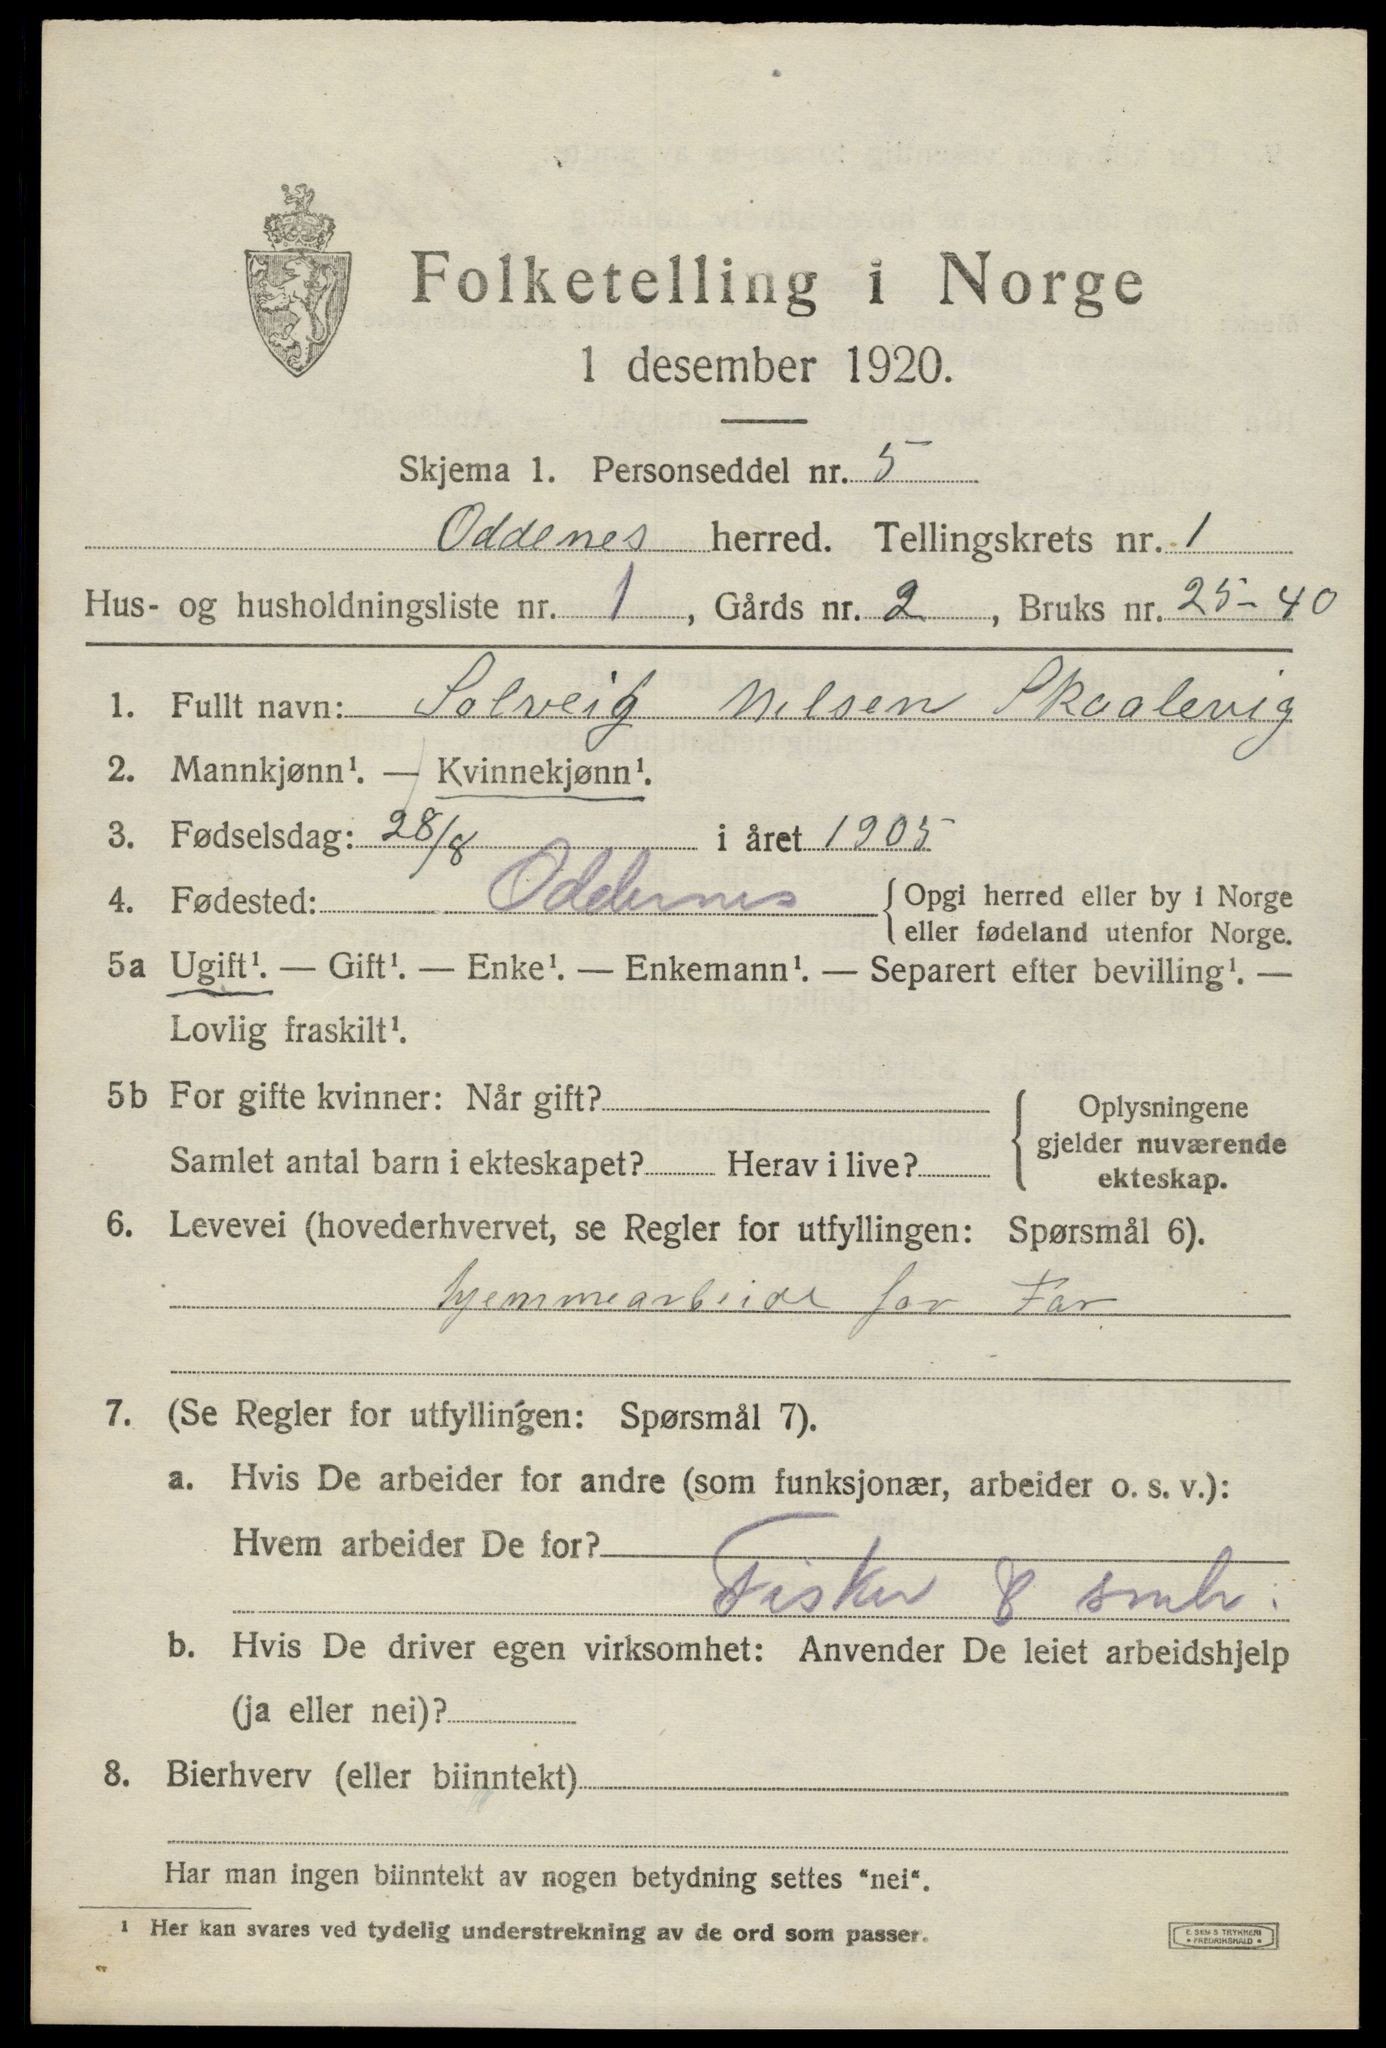 Folketelling i Norge
1 desember 1920.
Skjema 1. Personseddel nr. 5
Oddenes herred. Tellingskrets nr. 1
Hus- og husholdningsliste nr. 1, Gårds nr. 2, Bruks nr. 25-40
1. Fullt navn: Solveig Nilsen Skaalevig
2. Mannkjønn¹. — Kvinnekjønn¹.
3. Fødselsdag: 28/8 i året 1905
4. Fødested: Oddernes { Opgi herred eller by i Norge
eller fødeland utenfor Norge.
5a Ugift¹. — Gift¹. — Enke¹. — Enkemann¹. — Separert efter bevilling¹. —
Lovlig fraskilt¹.
5b For gifte kvinner: Når gift?
Samlet antal barn i ekteskapet? Herav i live?
Oplysningene
gjelder nuværende
ekteskap.
6. Levevei (hovederhvervet, se Regler for utfyllingen: Spørsmål 6).
hjemmearbeide for Far
7. (Se Regler for utfyllingen: Spørsmål 7).
a. Hvis De arbeider for andre (som funksjonær, arbeider o. s. v.):
Hvem arbeider De for?
Fisker & smbr:
b. Hvis De driver egen virksomhet: Anvender De leiet arbeidshjelp
(ja eller nei)?
8. Bierhverv (eller biinntekt)
Har man ingen biinntekt av nogen betydning settes “nei“.
¹ Her kan svares ved tydelig understrekning av de ord som passer.
E. SEM'S TRYKKERI
• FREDRIKSHALD •